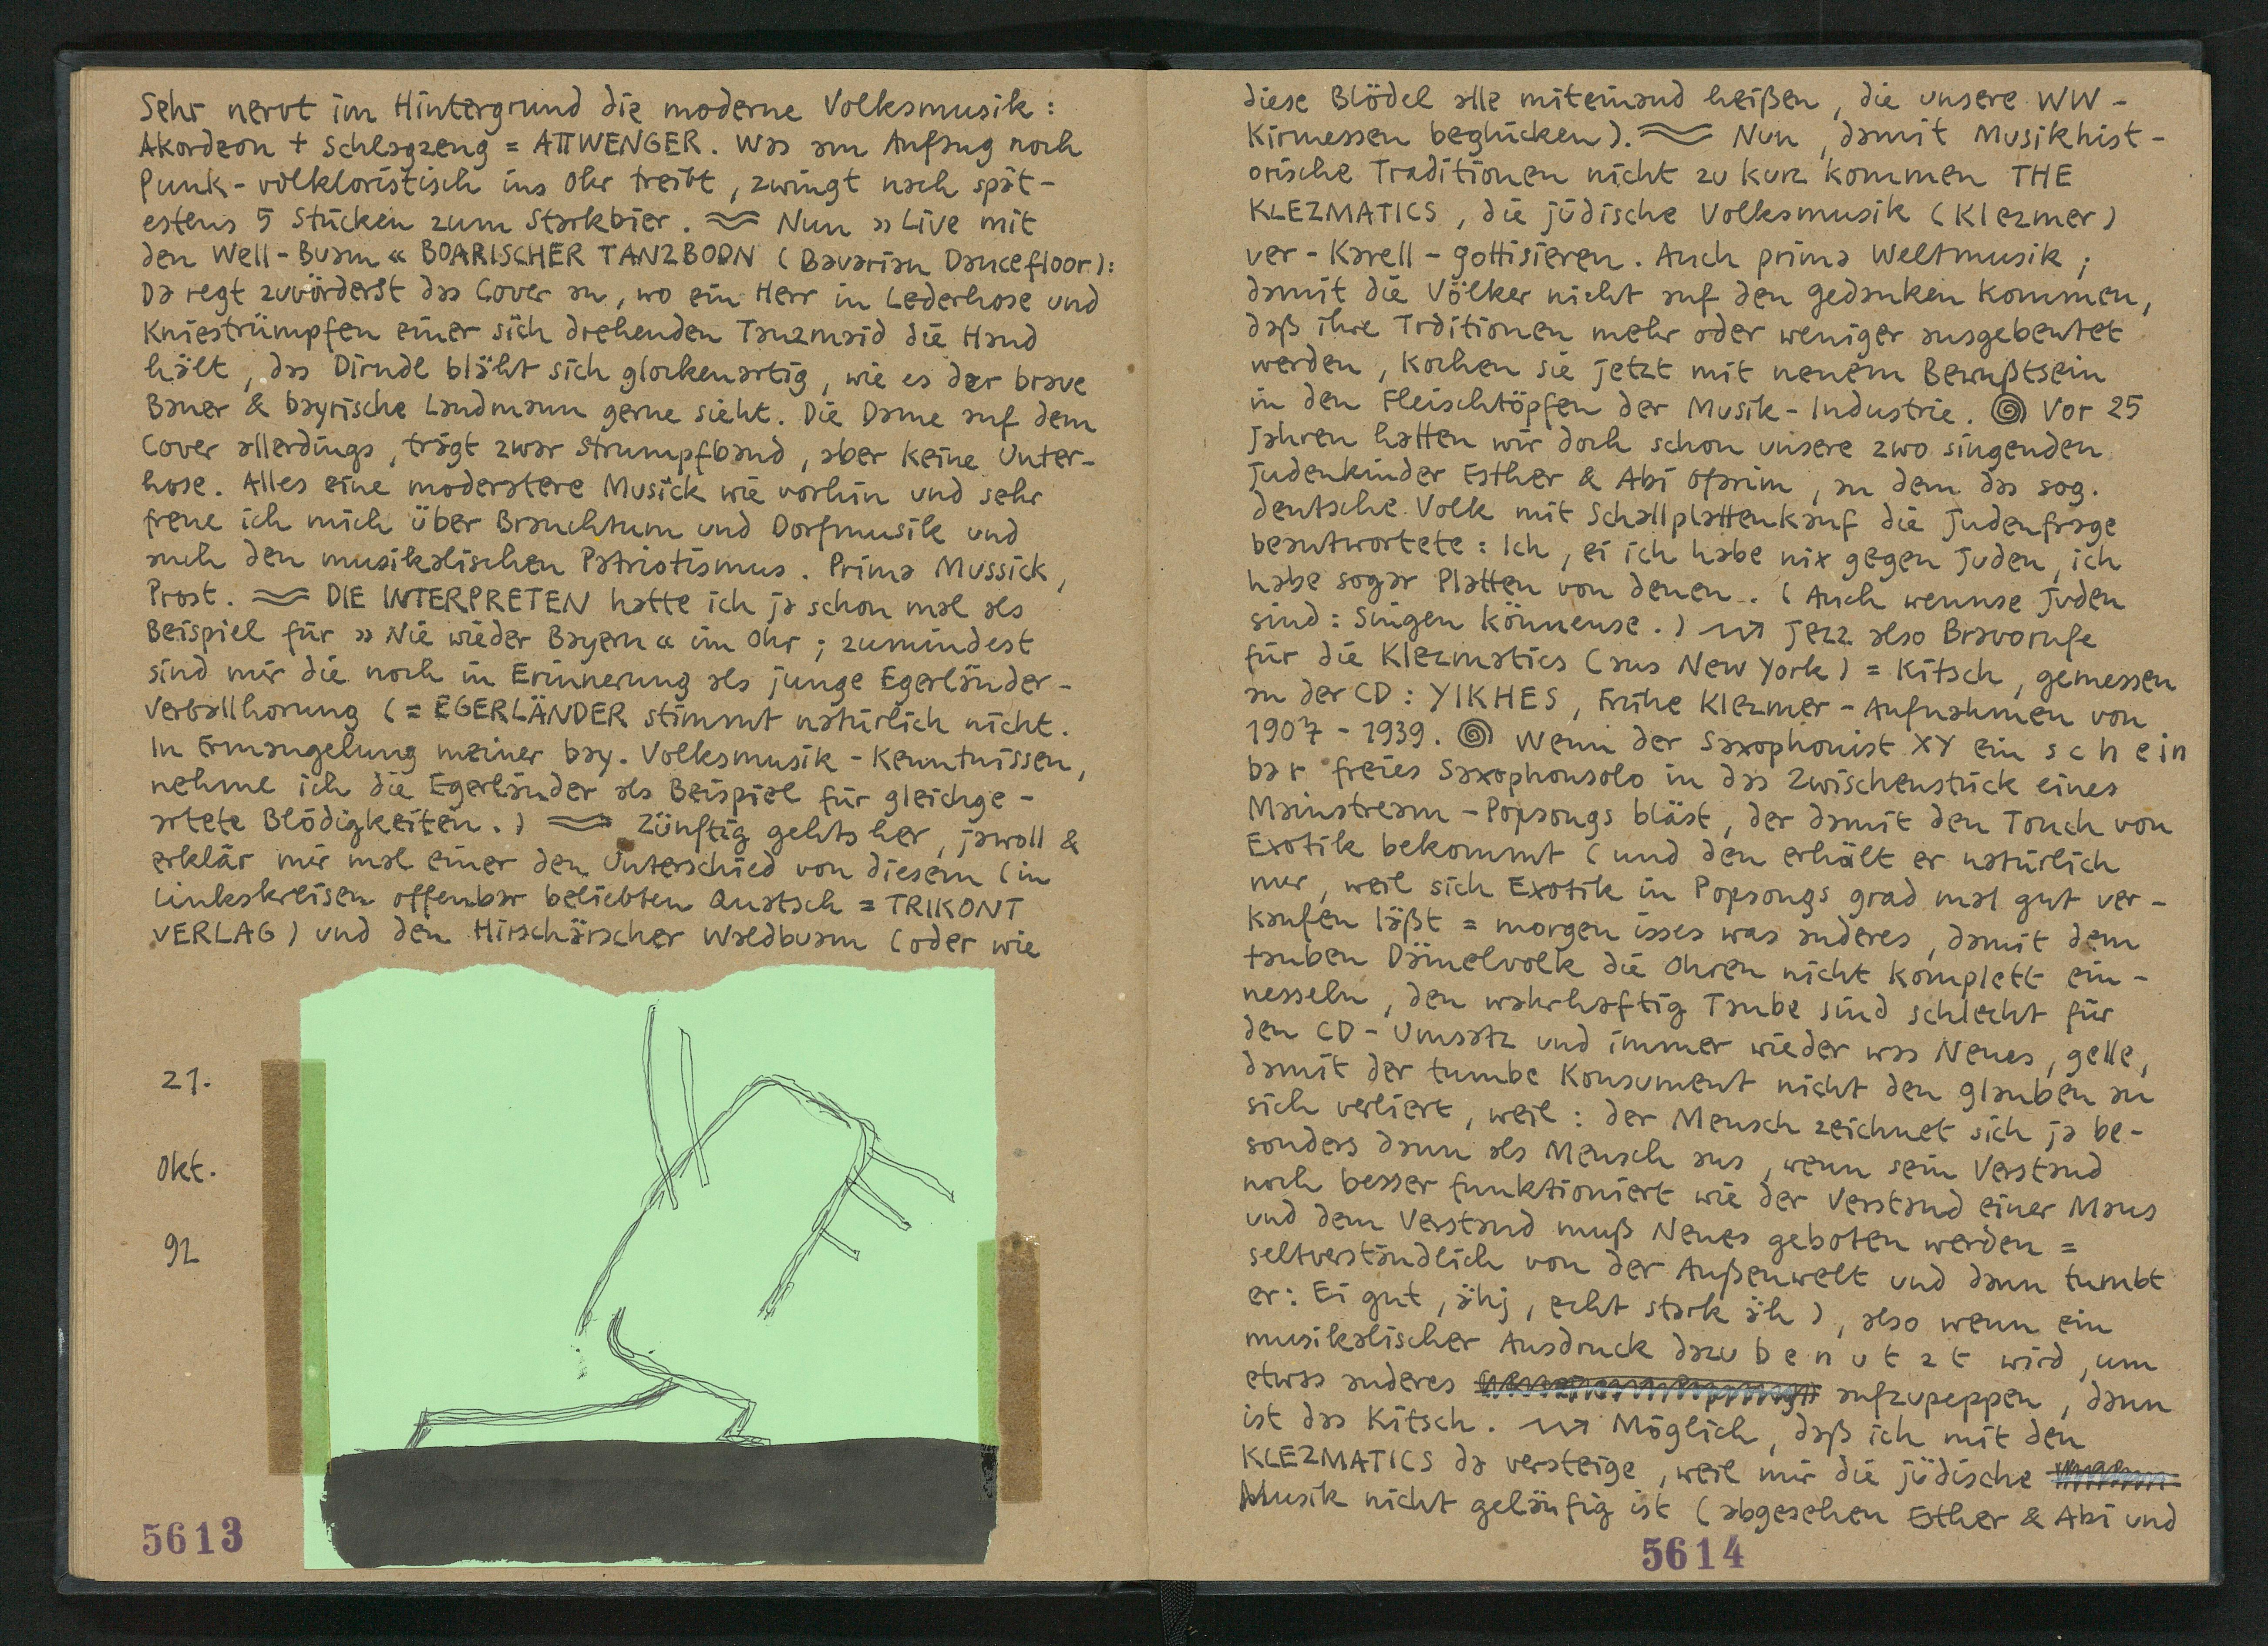 Sehr nervt im Hintergrund die moderne Volksmusik:
Akordeon + Schlagzeug = ATTWENGER. Was am Anfang noch
Punk-volkloristisch ins Ohr treibt, zwingt nach spät-
estens 5 Stücken zum Starkbier. ≈ Nun »Live mit
den Well-Buam« BOARISCHER TANZBODN (Bavarian Dancefloor):
Da regt zuvörderst das Cover an, wo ein Herr in Lederhose und
Kniestrümpfen einer sich drehenden Tanzmaid die Hand
hält, das Dirndl bläht sich glockenartig, wie es der brave
Bauer & bayrische Landmann gerne sieht. Die Dame auf dem
Cover allerdings, trägt zwar Strumpfband, aber keine Unter-
hose. Alles eine moderatere Musick wie vorhin und sehr
freue ich mich über Brauchtum und Dorfmusik und
auch den musikalischen Patriotismus. Prima Mussick,
Prost. ≈ DIE INTERPRETEN hatte ich ja schon mal als
Beispiel für »Nie wieder Bayern« im Ohr; zumindest
sind mir die noch in Erinnerung als junge Egerländer-
Verballhorung (= EGERLÄNDER stimmt natürlich nicht.
In Ermangelung meiner bay. Volksmusik-Kenntnissen,
nehme ich die Egerländer als Beispiel für gleichge-
artete Blödigkeiten.) ≈ Zünftig gehts her, jawoll &
erklär mir mal einer den Unterschied von diesem (in
Linkskreisen offenbar beliebten Quatsch = TRIKONT
VERLAG) und den Hirschärscher Waldbuam (oder wie
21.
Okt.
92
5613
diese Blödel alle miteinand heißen, die unsere WW-
Kirmessen beglücken). ≈ Nun, damit Musikhist-
orische Traditionen nicht zu kurz kommen THE
KLEZMATICS, die jüdische Volksmusik (Klezmer)
ver-Karell-gottisieren. Auch prima Weltmusik;
damit die Völker nicht auf den Gedanken kommen,
daß ihre Trditionen mehr oder weniger ausgebeutet
werden, kochen sie jetzt mit neuem Bewußtsein
in den Fleischtöpfen der Musik-Industrie. Vor 25
Jahren hatten wir doch schon unsere zwo singenden
Judenkinder Esther & Abi Ofarim, an dem das sog.
deutsche Volk mit Schallplattenkauf die Judenfrage
beantwortete: Ich, ei ich habe nix gegen Juden, ich
habe sogar Platten von denen. (Auch wennse Juden
sind: Singen könnense.) Jezz also Bravorufe
für die Klezmatics (aus New York) = Kitsch, gemessen
an der CD: YIKHES, Frühe Klezmer-Aufnahmen von
1907-1939. Wenn der Saxophonist XY ein s c h e i n
b a r freies Saxophonsolo in das Zwischenstück eines
Mainstream-Popsongs bläst, der damit den Touch von
Exotik bekommt (und den erhält er natürlich
nur, weil sich Exotik in Popsongs grad mal gut ver-
kaufen läßt = morgen isses was anderes, damit dem
tauben Dämelvolk die Ohren nicht komplett ein-
nesseln, den wahrhaftig Taube sind schlecht für
den CD-Umsatz und immer wieder was Neues, gelle,
damit der tumbe Konsument nicht den Glauben an
sich verliert, weil: der Mensch zeichnet sich ja be-
sonders dann als Mensch aus, wenn sein Verstand
noch besser funktioniert wie der Verstand einer Maus
und dem Verstand muß Neues geboten werden =
seltverständlich von der Außenwelt und dann tumbt
er: Ei gut, ähj, echt stark äh), also wenn ein
musikalischer Ausdruck dazu b e n u t z t wird, um
etwas anderes aufzupeppen, dann
ist das Kitsch. Möglich, daß ich mit den
KLEZMATICS da versteige, weil mir die jüdische
Musik nicht geläufig ist (abgesehen Esther & Abi und
5614